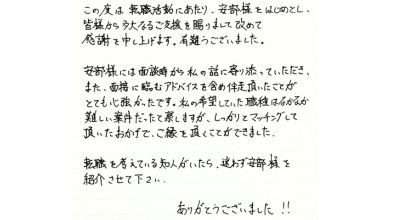 この度は 転職活動にあたり、安部様をはじめとし、
皆様から多大なるご支援を賜りまして改めて
感謝を申し上げます。有難うございました。
安部様には面談時から私の話に寄り添っていただき、
また、面接に臨むアドバイスを含め伴走頂いたことが
とても心強かったです。私の希望していた職種はなかなか
難しい案件だったと察しますが、しっかりとマッチングして
頂いたおかげで、ご縁を頂くことができました。
転職を考えている知人がいたら、迷わず安部様を
紹介させて下さい。
ありがとうございました!!